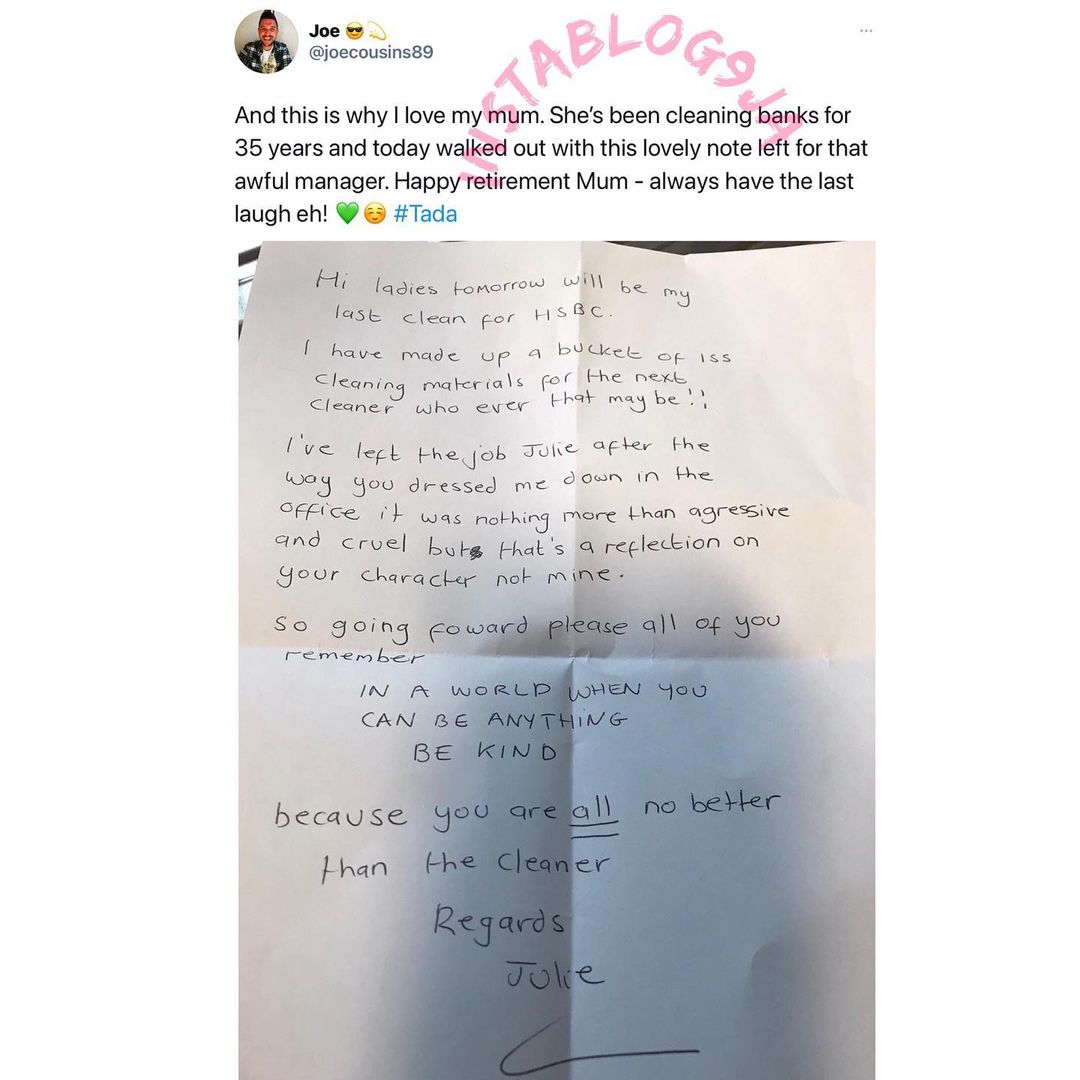 Joe 😎 💫
@joecousins89
INSTABLOG9JA
And this is why I love my mum. She’s been cleaning banks for
35 years and today walked out with this lovely note left for that
awful manager. Happy retirement Mum - always have the last
laugh eh! 💚 ☺️ #Tada
Hi ladies tomorrow will be my
last clean for HSBC.
I have made up a bucket of iss
cleaning materials for the next
cleaner who ever that may be!!
I've left the job Julie after the
way you dressed me down in the
office it was nothing more than agressive
and cruel but that's a reflection on
your character not mine.
So going foward please all of you
remember
IN A WORLD WHEN YOU
CAN BE ANYTHING
BE KIND
because you are all no better
than the cleaner
Regards
Julie